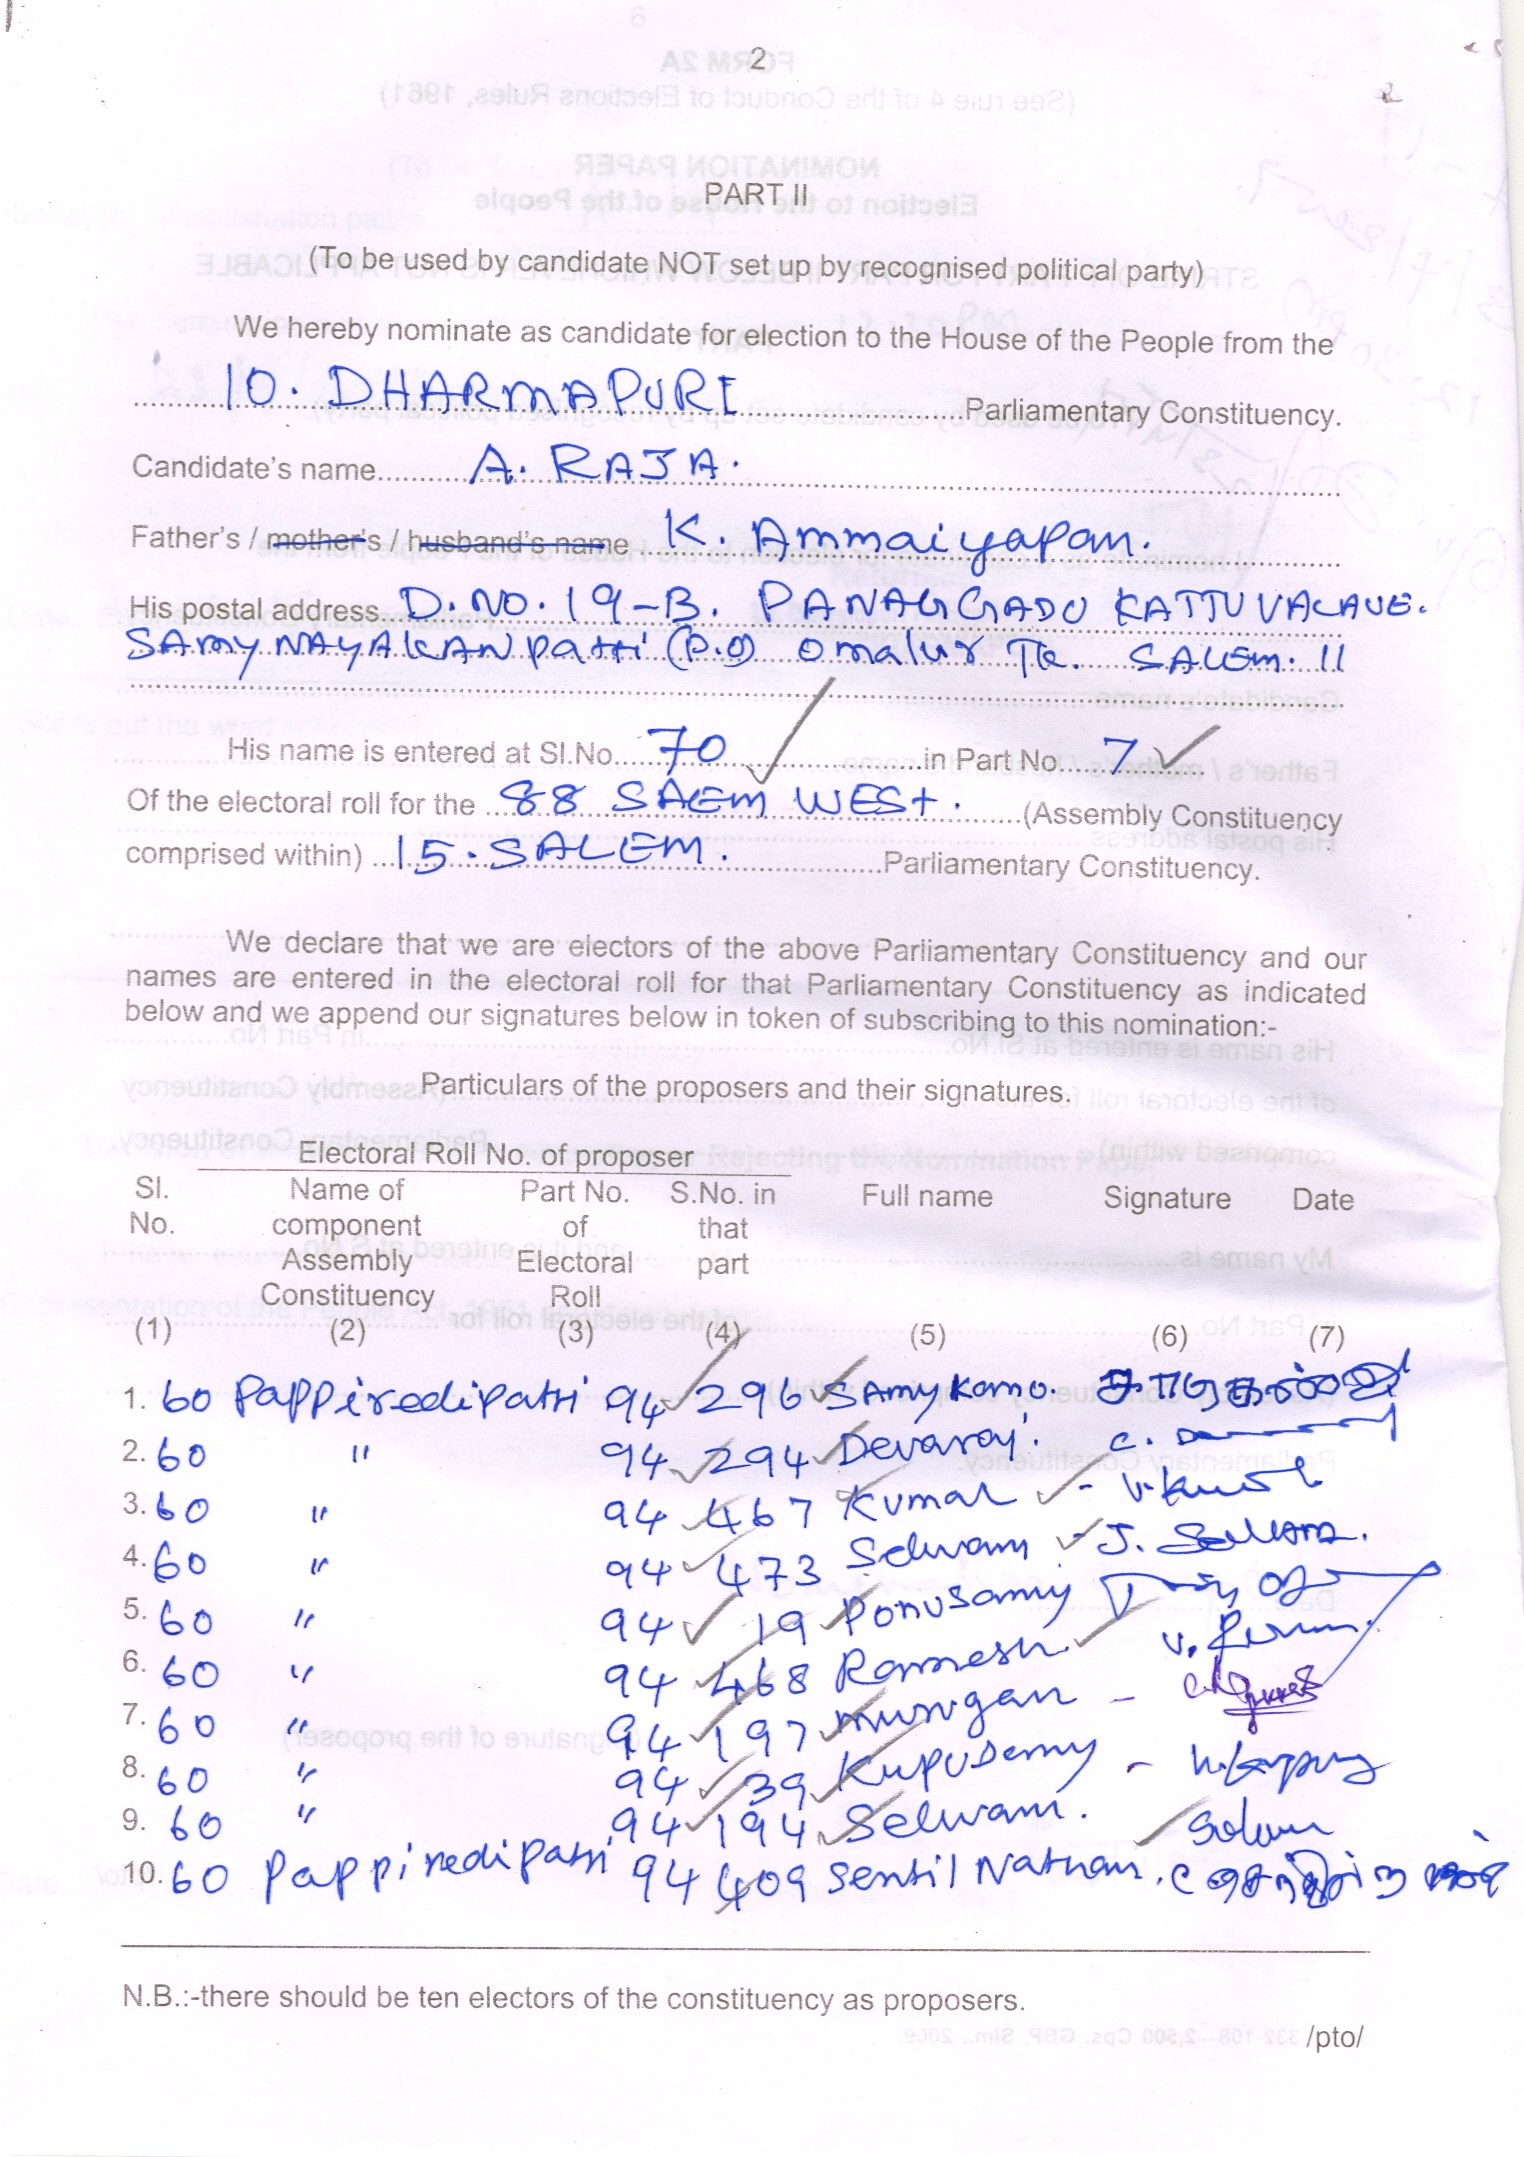 2
PART II
(To be used by candidate NOT set up by recognised political party)
We hereby nominate as candidate for election to the House of the People from the
10. DHARMAPURI Parliamentary Constituency.
Candidate's name A. RAJA.
Father's / mother's / husband's name K. Ammaiyapan.
His postal address D.NO. 19-B. PANAGGADU KATTUVALAUE.
SAMYNAYAKANpatti (P.O) omalur Tk. SALEM. 11
His name is entered at Sl.No. 70 in Part No. 7
Of the electoral roll for the 88 SAEM WESt. (Assembly Constituency
comprised within) 15. SALEM. Parliamentary Constituency.
We declare that we are electors of the above Parliamentary Constituency and our
names are entered in the electoral roll for that Parliamentary Constituency as indicated
below and we append our signatures below in token of subscribing to this nomination:-
Particulars of the proposers and their signatures.
Electoral Roll No. of proposer
Sl. Name of Part No. S.No. in Full name Signature Date
No. component of that
Assembly Electoral part
Constituency Roll
(1) (2) (3) (4) (5) (6) (7)
1. 60 Pappiredipatti 94 296 SAmykanu.
2. 60 " 94 294 Devaraj. c.
3. 60 " 94 467 Kumar -
4. 60 " 94 473 Selvam - J.
5. 60 " 94 19 Ponusamy
6. 60 " 94 468 Ramesh v.
7. 60 " 94 197 murugan -
8. 60 " 94 39 KupuSamy -
9. 60 " 94 194 Selvam.
10. 60 Pappiredipatti 94 409 Sentil Nathan.
N.B.:-there should be ten electors of the constituency as proposers.
/pto/